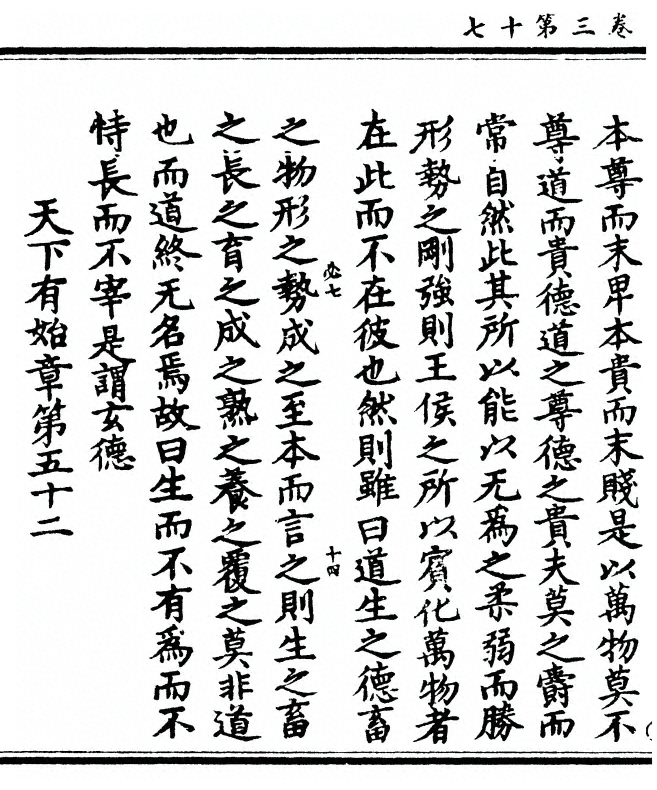 卷三第十七
本尊而末卑本貴而末賤是以萬物莫不
尊道而貴德道之尊德之貴夫莫之爵而
常自然此其所以能以无為之柔弱而勝
形勢之剛強則王侯之所以賓化萬物者
在此而不在彼也然則雖曰道生之德畜
必七
十四
之物形之勢成之至本而言之則生之畜
之長之育之成之熟之養之覆之莫非道
也而道終无名焉故曰生而不有為而不
恃長而不宰是謂玄德
天下有始章第五十二